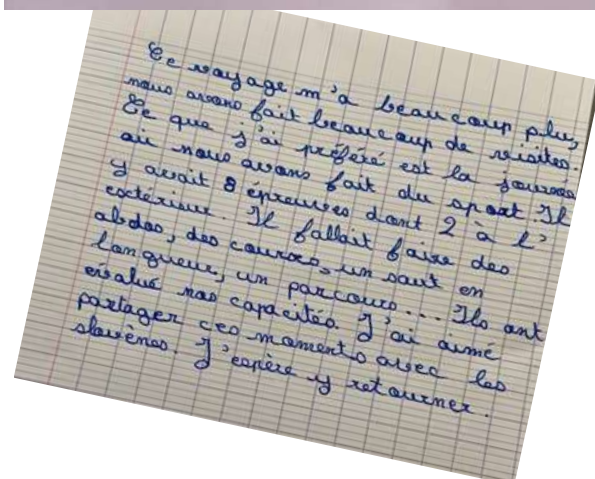 Ce voyage m'a beaucoup plu,
nous avons fait beaucoup de visites.
Ce que j'ai préféré est la journée
où nous avons fait du sport. Il
y avait 8 épreuves dont 2 à l'
extérieur. Il fallait faire des
abdos, des courses, un saut en
longueur, un parcours... Ils ont
évalué nos capacités. J'ai aimé
partager ces moments avec les
slovènes. J'espère y retourner.